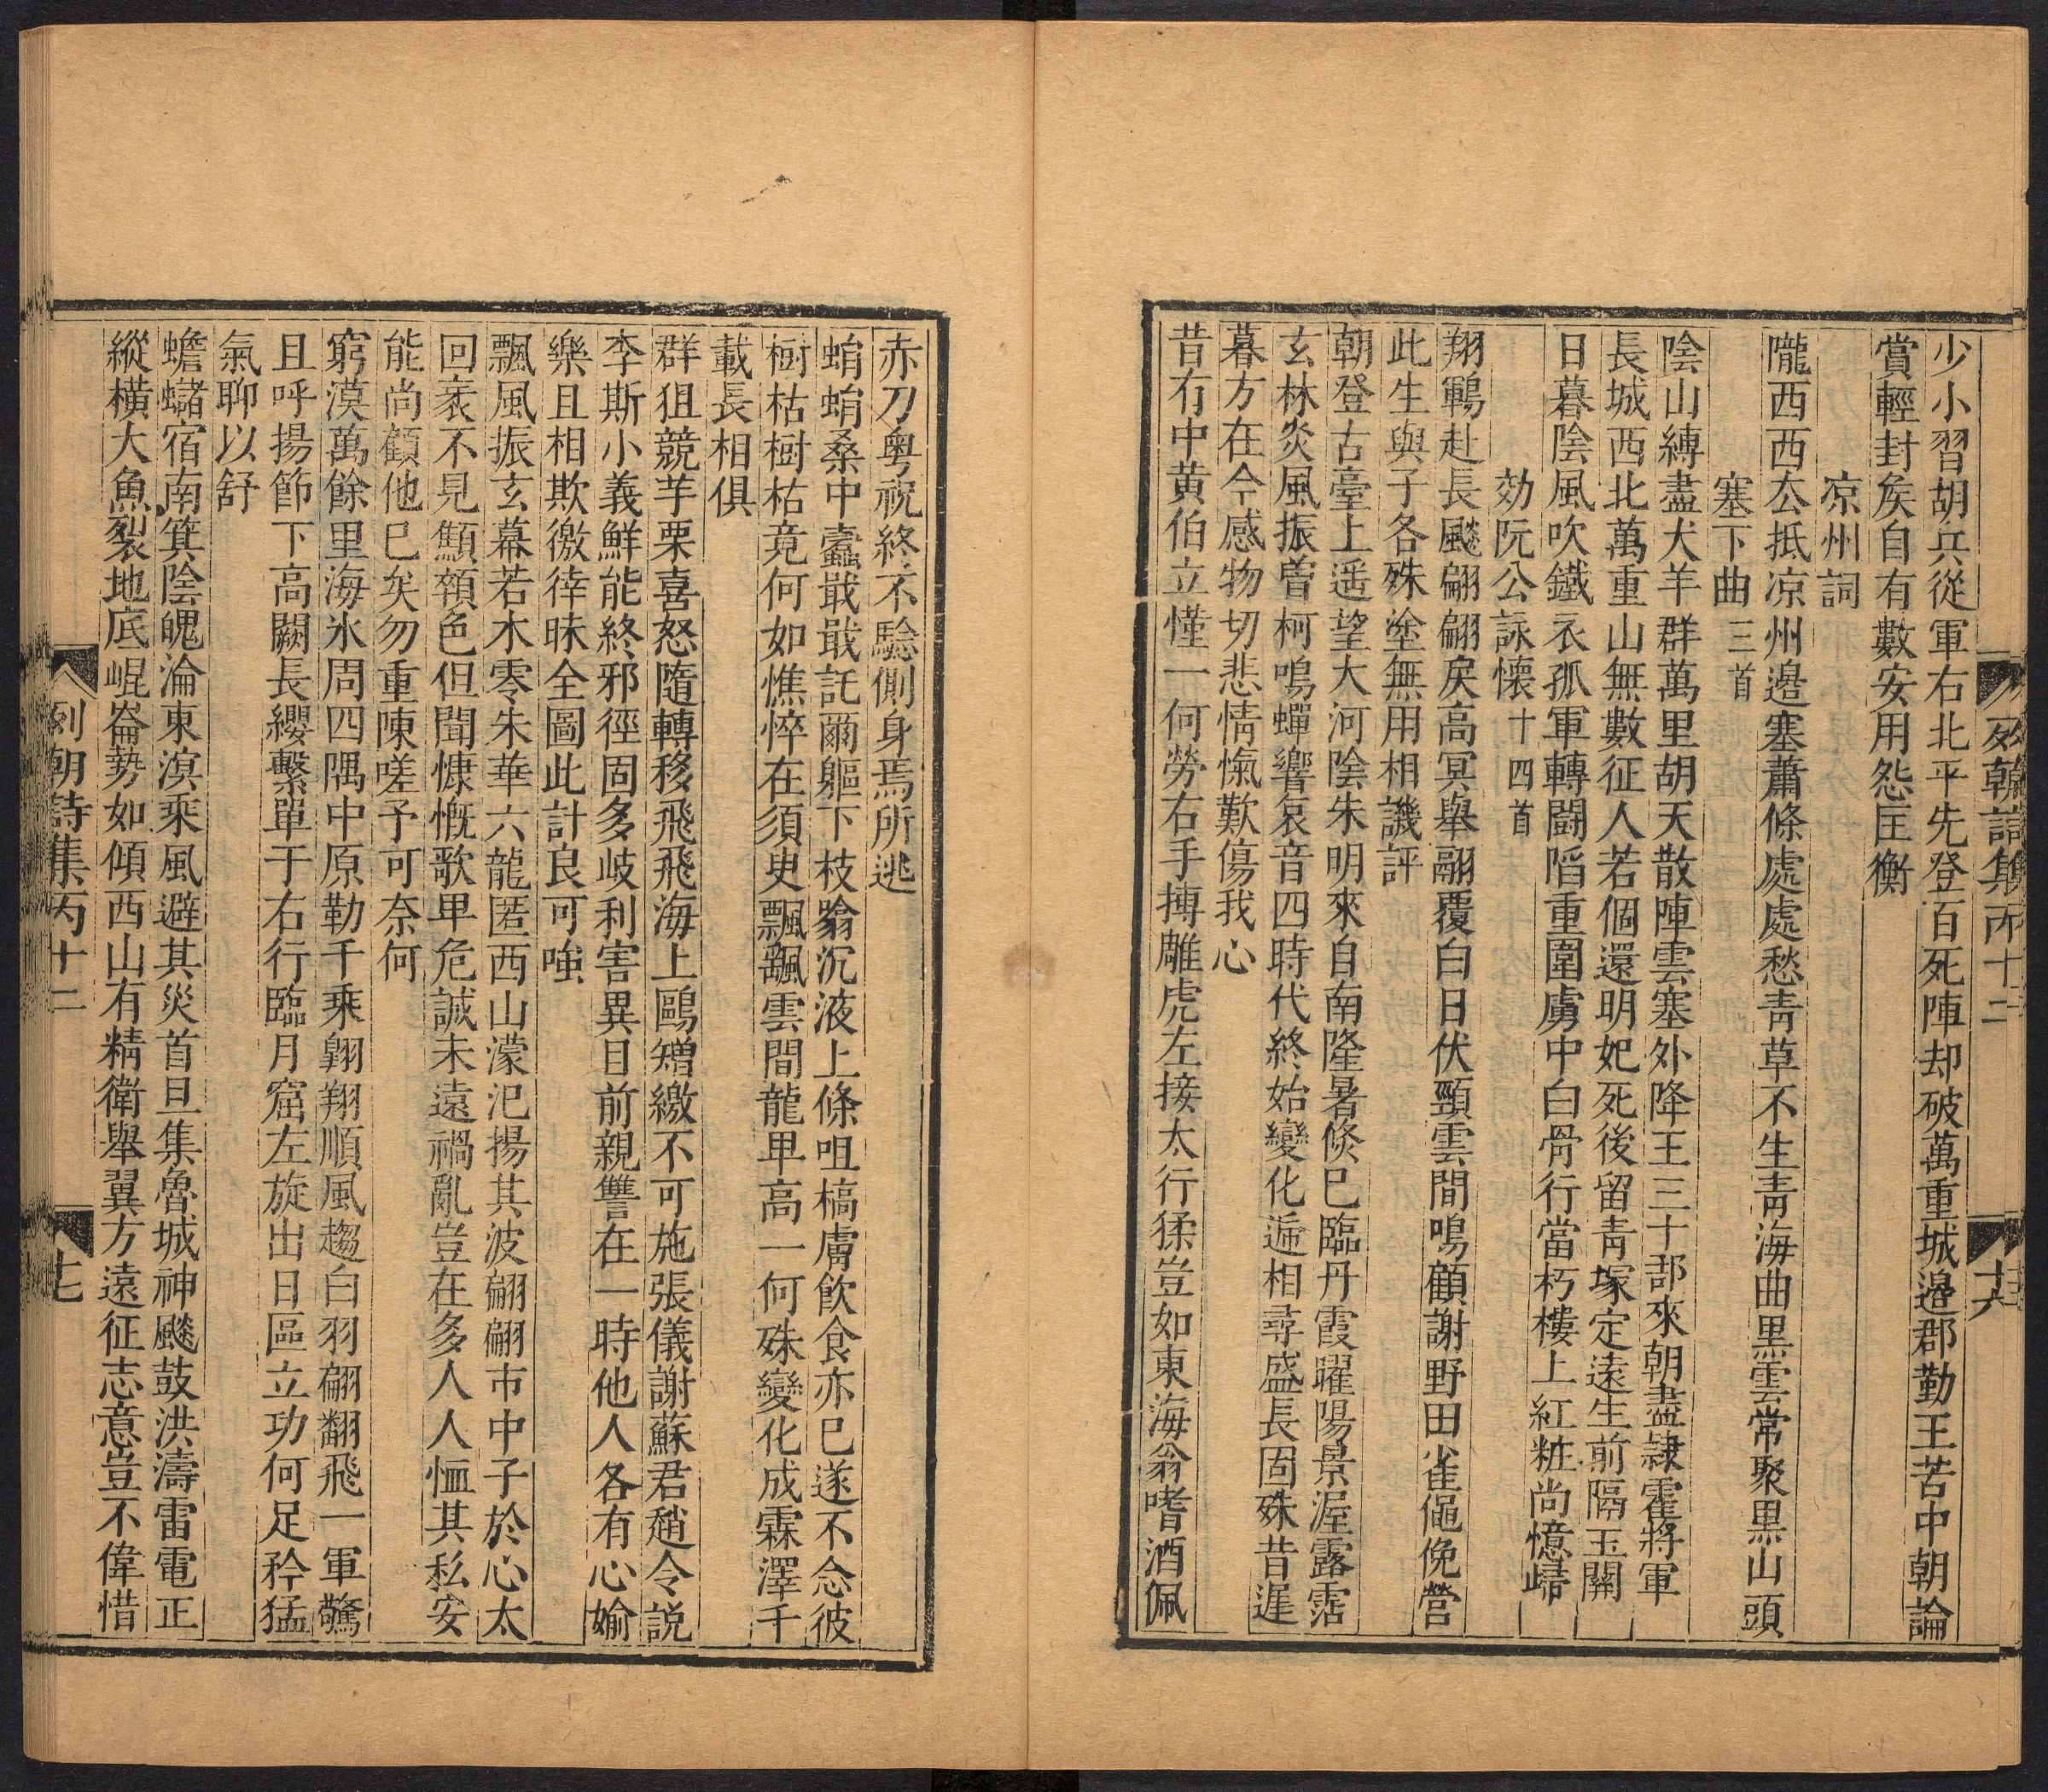 列朝詩集丙十二
十六
少小習胡兵從軍右北平先登百死陣却破萬重城邉郡勤王苦中朝論
賞輕封矦自有數安用怨匡衡
凉州詞
隴西西去抵凉州邉塞蕭條處處愁青草不生青海曲黒雲常聚黒山頭
塞下曲三首
陰山縛盡犬羊群萬里胡天散陣雲塞外降王三十部來朝盡隸霍將軍
長城西北萬重山無數征人若個還明妃死後留青塚定遠生前隔玉關
日暮陰風吹鐵衣孤軍轉闘陷重圍虜中白骨行當朽樓上紅粧尚憶歸
効阮公詠懷十四首
翔鷃赴長飈翩翩戾高冥舉翮覆白日伏頸雲間鳴顧謝野田雀僶俛營
此生與子各殊塗無用相譏評
朝登古臺上遥望大河陰朱明來自南隆暑倐已臨丹霞曜陽景渥露霑
玄林炎風振曽柯鳴蟬響哀音四時代終始變化遞相尋盛長固殊昔遲
暮方在今感物切悲情愾歎傷我心
昔有中黄伯立慬一何勞右手搏雕虎左接太行猱豈如東海翁嗜酒佩
赤刀粤祝終不騐側身焉所逃
蜎蜎桑中蠹戢戢託爾軀下枝翳沉液上條咀槁膚飲食亦已遂不念彼
樹枯樹枯竟何如憔悴在須臾飄飄雲間龍卑高一何殊變化成霖澤千
載長相俱
群狙競芋栗喜怒隨轉移飛飛海上鷗矰繳不可施張儀謝蘇君趙令説
李斯小義鮮能終邪徑固多岐利害異目前親讐在一時他人各有心媮
樂且相欺徼倖昧全圖此計良可嗤
飄風振玄幕若木零朱華六龍匿西山濛汜揚其波翩翩市中子於心太
回袤不見顦顇色但聞慷慨歌卑危誠未遠禍亂豈在多人人恤其私安
能尚顧他已矣勿重陳嗟予可奈何
窮漠萬餘里海氷周四隅中原勒千乘翺翔順風趨白羽翩翻飛一軍驚
且呼揚節下高闕長纓繫單于右行臨月窟左旋出日區立功何足矜猛
氣聊以舒
蟾蠩宿南箕陰魄淪東溟乘風避其災首旦集魯城神飈鼓洪濤雷電正
縱横大魚裂地底崐崙勢如傾西山有精衛舉翼方遠征志意豈不偉惜
列朝詩集丙十二
十七